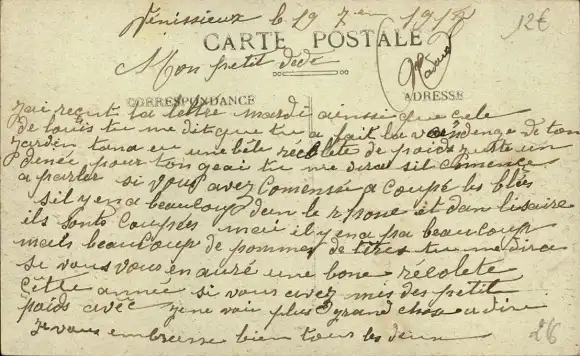 Vénissieux le 19 7em 1912
12€
CARTE POSTALE
Mon petit dédé
CORRESPONDANCE
ADRESSE
J'ai reçut ta lettre mardi ainsi que cele
de louis tu me dit que tu a fait la vendenge de ton
jarden tana eu une bèle récolete de poids juste un
dinée pour ton geai tu me dira sil comence
a parler si vous avez comensée a coupé les blés
sil y en a beaucoup dan le rhone et dan lisaire
ils sont coupées mai il y en a pa beaucoup
mails beaucoup de pommes de tères tu me dira
si vous vous en auré une bone récolete
cètte année si vous avez mis des petit
poids avec je ne voi plus grand chose a dire
je vous embrasse bien tous les deux